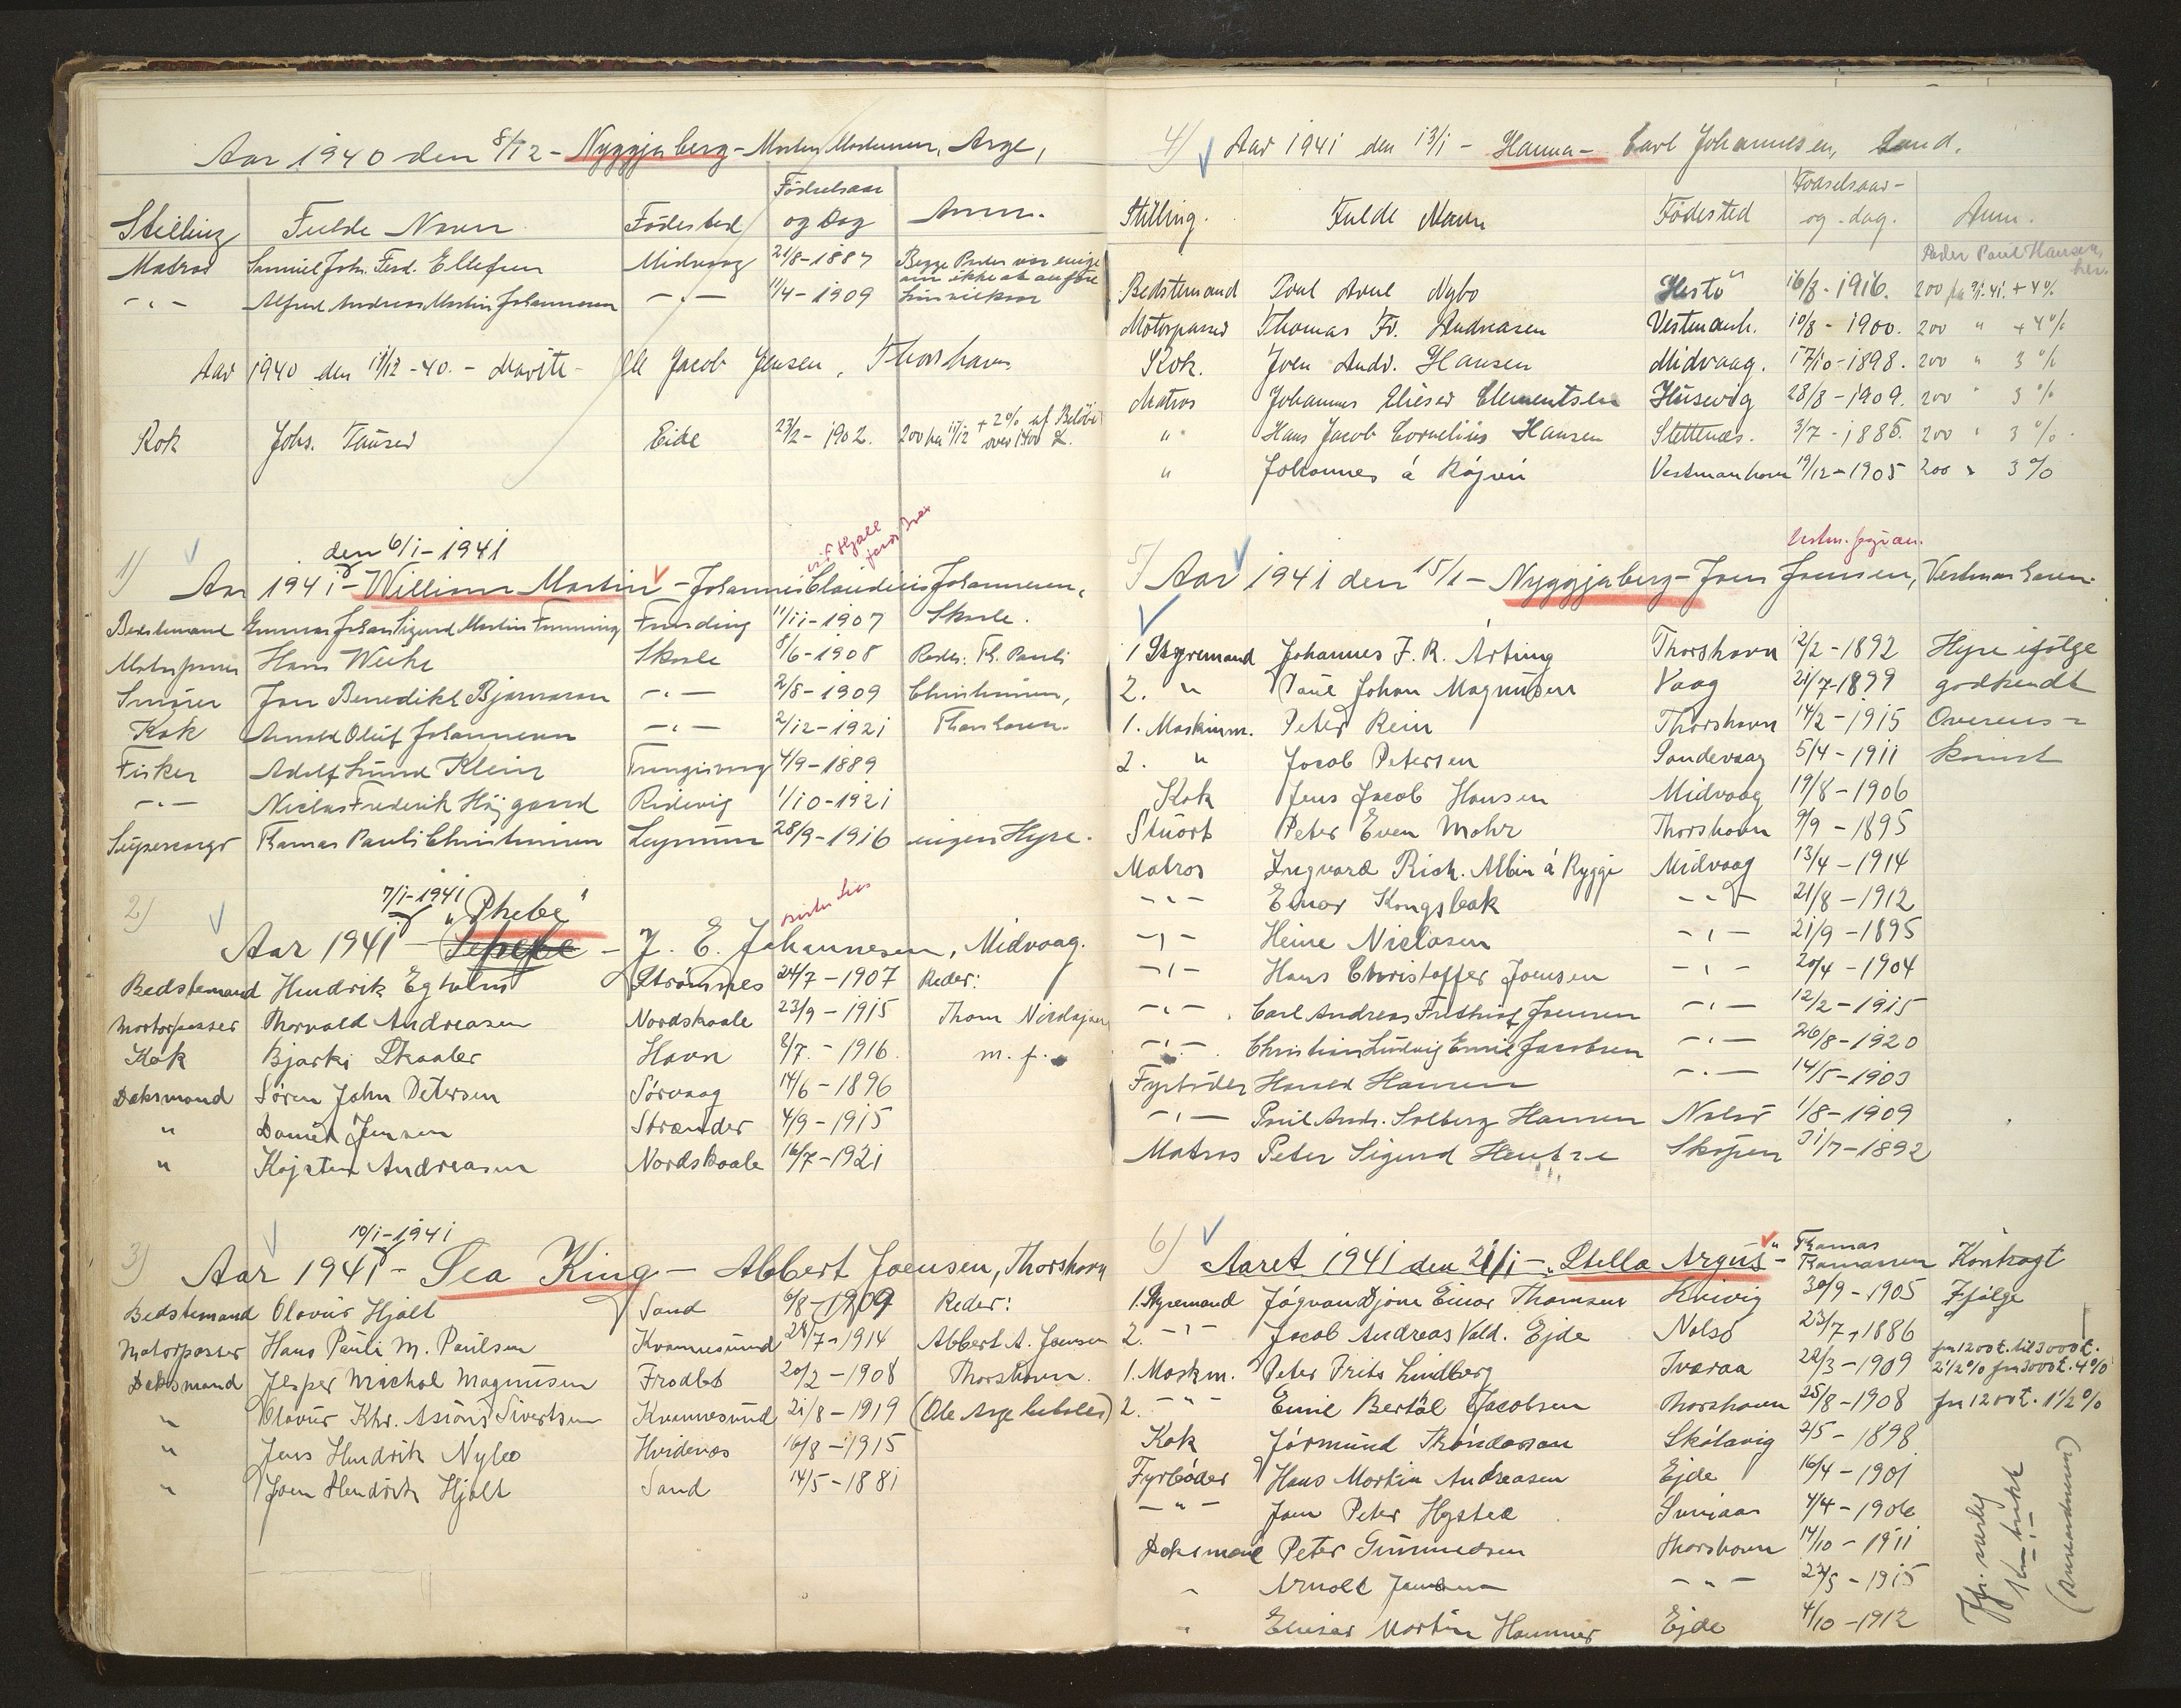 Aar 1940 den 8/12 - Nyggjaberg - Morten Mortensen, Arge,
Stilling Fulde Navn Födested Födselsaar og Dag Anm.
Matros Samuel Joh. Ferd. Ellefsen Midvaag 21/8-1887 Begge Parter var enige
om ikke at anföre
-"- Alfred Andreas Martin Johannesen -"- 11/4-1909
Aar 1940 den 11/12-40. - Jacob Jensen, Thorshavn
Kok Johs. Tausen Eide 27/2-1902. 200 fra 11/12 + 2% af Belöb over 1400 £.
den 6/1-1941
1) Aar 1941 - William Martin - Johannes Claudius Johannesen,
Bedstemand Johan Sigurd Martin Funding 11/11-1907 Skaale.
Motorpasser Hans Weihe Skaale 8/6-1908 Reder: Th. Pauli
Smörer Jon Benedikt Bjarnason -"- 2/8-1909 Christiansen,
Kok Arnold Oluf Johannesen -"- 2/12-1921 Thorshavn.
Fisker Adolf Lund Klein 4/9-1889
-"- Niclas Frederik Höjgaard Ridevig 1/10-1921
Supercargo Tkamas Pauli Christiansen Leynum 28/9-1916 ingen Hyre.
7/1-1941 "Phebe"
2) Aar 1941 - J. E. Johannesen, Midvaag.
Bedstemand Hendrik Egholm Strömnes 24/7-1907 Reder:
Mortorpasser Thorvald Andreasen Nordskaale 23/9-1915 Thom
Kok Bjarki Skaaler Havn 8/7.-1916. m. f.
Daksmand Sören John Petersen Sörvaag 14/6-1896
" Daniel Jensen Strænder 4/9-1915
" Kojsten Andreasen Nordskaale 16/7-1921
10/1-1941
3) Aar 1941 - Sea King - Abbert Joensen, Thorshavn
Bedstemand Olavur Hjalt Sand 9/8-1909 Reder:
Motorpasser Hans Pauli M. Paulsen Kvannesund 24/7-1914 Abbert A. Joensen
Daksmand Jesper Michal Magnusen Frodbö 20/2-1908 Thorshavn.
" Olavur Khr. Sivertsen Kvannesund 21/8-1919 (Ole Arge
" Jens Hendrik Nybo Hvidenæs 16/8-1915
" Joen Hendrik Hjalt Sand 14/5-1881
4) Aar 1941 den 13/1 - Hanna - Carl Johannesen, Sand.
Stilling. Fulde Navn Födested Födselsaar- og -dag. Anm.
Reder Poul Hansen,
her.
Bedstemand Poul Nybo Hestö 16/8-1916. 200 fra 9/1.41. + 4%
Motorpasser Thomas Fr. Andreasen Vestmanh. 10/8-1900. 200 " + 4%
Kok. Joen Andr. Hansen Midvaag. 17/10-1898. 200 " 3%
Matros Johannes Elieser Clementsen Husevig 28/8-1909. 200 " 3%
" Hans Jacob Cornelius Hansen Slettenæs. 3/7-1885. 200 " 3%.
" Johannes á Rógvu Vestmanhavn 19/12-1905 200 " 3%
5) Aar 1941 den 15/1 - Nyggjaberg - Joen Joensen, Vestmanhavn.
1 Styremand Johannes F. R. Arting Thorshavn 12/2-1892 Hyre ifölge
2. " Paul Johan Magnussen Vaag 21/7-1899 godkendt
1. Maskinm. Peter Rein Thorshavn 14/2-1915 Overens-
2. " Jacob Petersen Sandevaag 5/4-1911 komst
Kok Jens Jacob Hansen Midvaag 19/8-1906
Stuort Peter Even Mohr Thorshavn 9/9-1895
Matros Ingvard Rich. Albin á Ryggi Midvaag 13/4-1914
-"- Einar Kongsbak -"- 21/8-1912
-"- Heine Niclasen -"- 21/9-1895
-"- Hans Christoffer Joensen -"- 20/4-1904
-"- Carl Andreas Fridthiof Joensen -"- 12/2-1915
-"- Christian Ludvig Emil Jacobsen -"- 26/8-1920
Fyrböder Harald Hansen -"- 14/5-1903
-"- Poul Andr. Solberg Hansen Nolsö 1/8-1909
Matros Peter Sigurd Hentze Skopen 31/7-1892
6) Aaret 1941 den 21/1 - "Stella Argus" - Tkamas Kontragt
1. Styremand Jógvan Djóni Einar Thomsen Kvivig 30/9-1905 Ifölge
2. -"- Jacob Andreas Vald. Ejde Nolsö 23/7-1886
1. Maskm. Peter Frits Lindberg Tværaa 22/3-1909 fra 1200£ til 3000£. 2 1/2% fra 3000£. 4%
2. -"- Emil Bertal Jacobsen Thorshavn 25/8-1908 fra 1200£. 1 1/2%
Kok Jórmund Tróndason Skálavig 2/5-1898
Fyrböder Hans Martin Andreasen Ejde 16/4-1901
-"- Joen Peter Hysted 4/4-1906
Daksmand Peter Gummedsen Thorshavn 14/10-1911
" Arnold -"- 22/5-1915
" Elieser Martin Hammer Ejde 4/10-1912